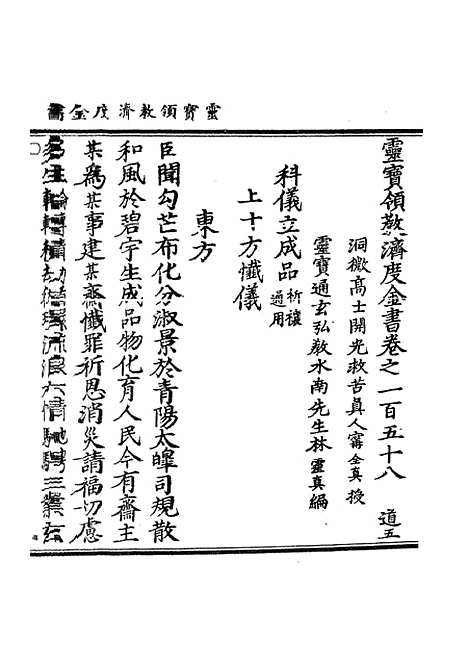 靈寶領教濟度金書
靈寶領教濟度金書卷之一百五十八 道五
洞微高士開光救苦眞人甯全真授
靈寶通玄弘教水南先生林靈真編
科儀立成品 祈禳通用
上十方懺儀
東方
臣聞勾芒布化分淑景於青陽太皥司規散
和風於碧宇生成品物化育人民今有齋主
某爲某事建某齋懺罪祈恩消災請福切慮
多生輪轉積劫 流浪六情馳騁三業